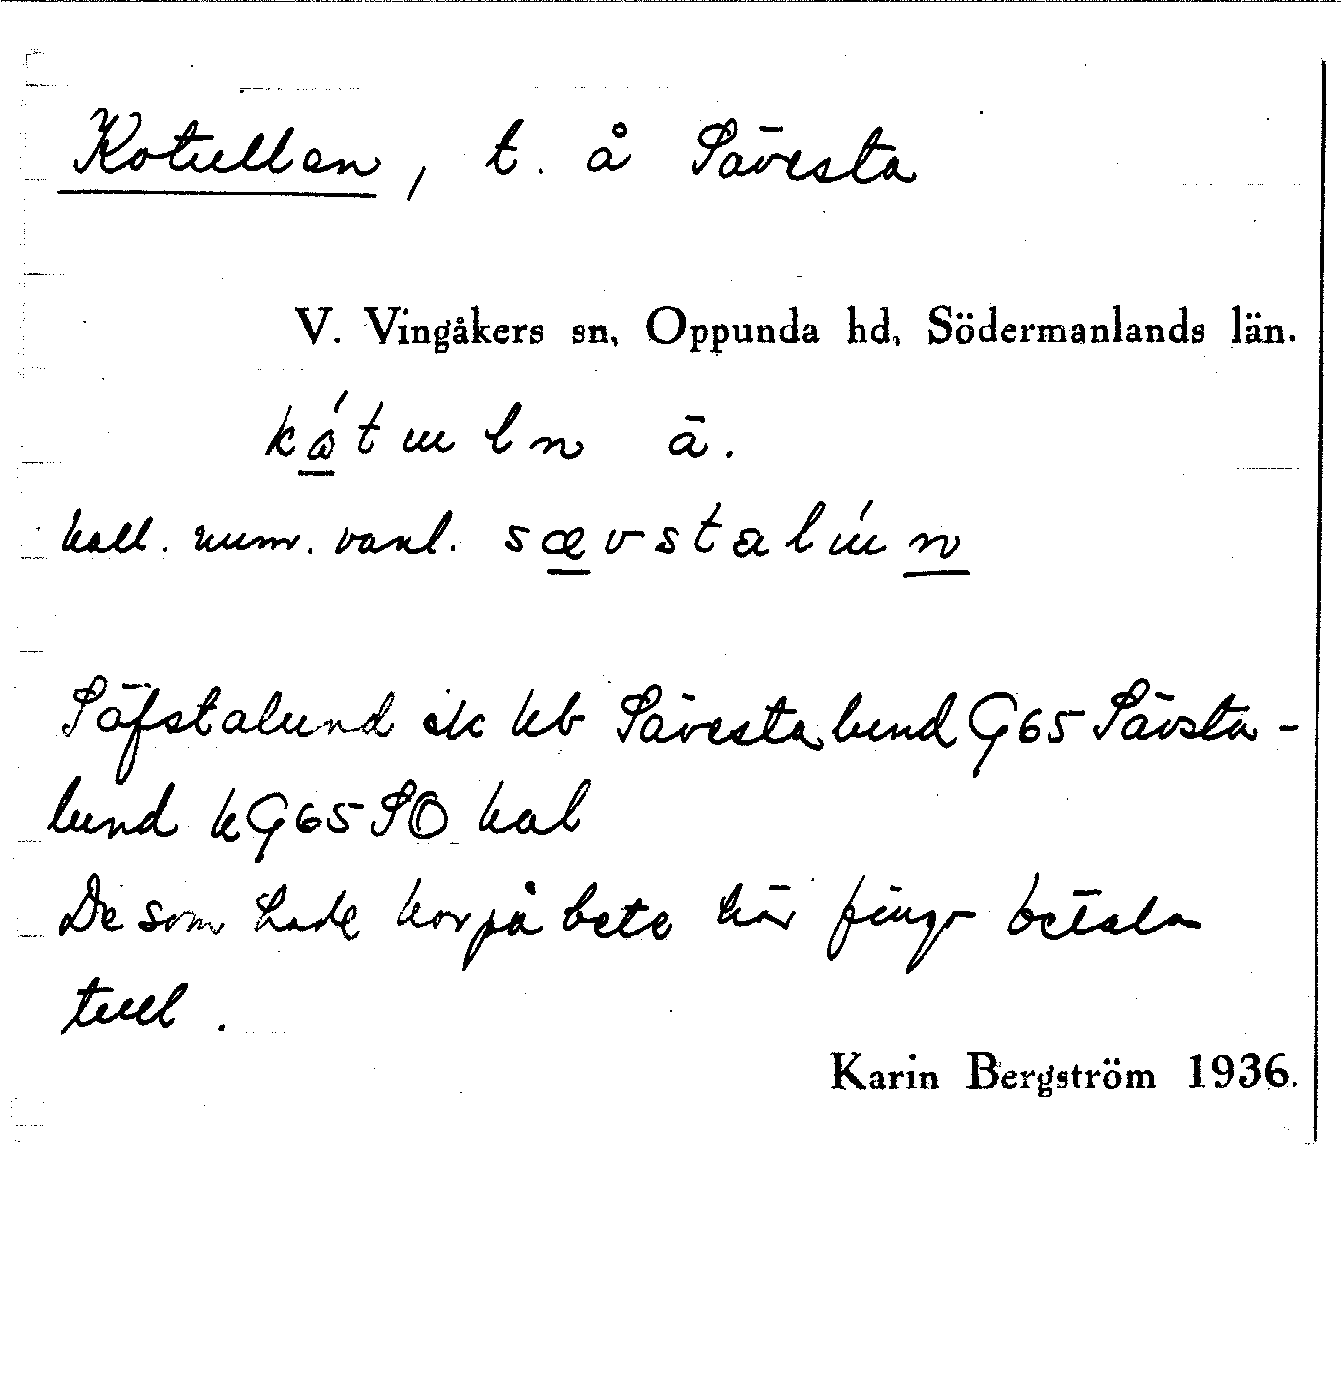 Kotullen, t. å Sävesta
V. Vingåkers sn, Oppunda hd, Södermanlands län.
kátuln ā.
kall. num. vanl. sævstalún
Säfstalund ek kb Sävesta lund G65 Sävsta-
lund kG65 SO kal
De som hade kor på bete här fingo betala
tull.
Karin Bergström 1936.